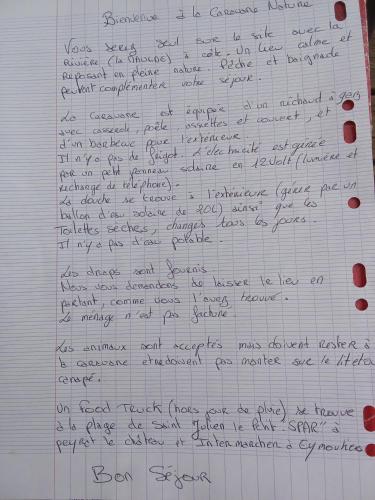 Bienvenue à la Caravane Nature
Vous serez seul sur le site avec la
Rivière (la MAULDE) à côté. Un lieu calme et
Reposant en pleine nature. Pêche et baignade
peuvent complémenter votre séjour.
La caravane est équipée d'un réchaud à gaz
avec casserole, poêle, assiettes et couvert, et
d'un barbecue pour l'extérieur.
Il n'y a pas de frigot. L'électricité est gérée
par un petit panneau solaire en 12 Volt (lumière et
Rechange de téléphone).
La douche se trouve à l'extérieure (gérer par un
ballon d'eau solaire de 20L) ainsi que les
Toilettes sèches, changés tous les jours.
Il n'y a pas d'eau potable.
Les draps sont fournis.
Nous vous demandons de laisser le lieu en
partant, comme vous l'avez trouvé.
Le ménage n'est pas facturé.
Les animaux sont acceptés mais doivent rester à
la caravane et ne doivent pas monter sur le lit et
canapé.
Un Food Truck (hors jour de pluie) se trouve
à la plage de Saint Julien le Petit "SPAR" à
peyrat le château et Intermarcher à Eymoutiers
Bon Séjour